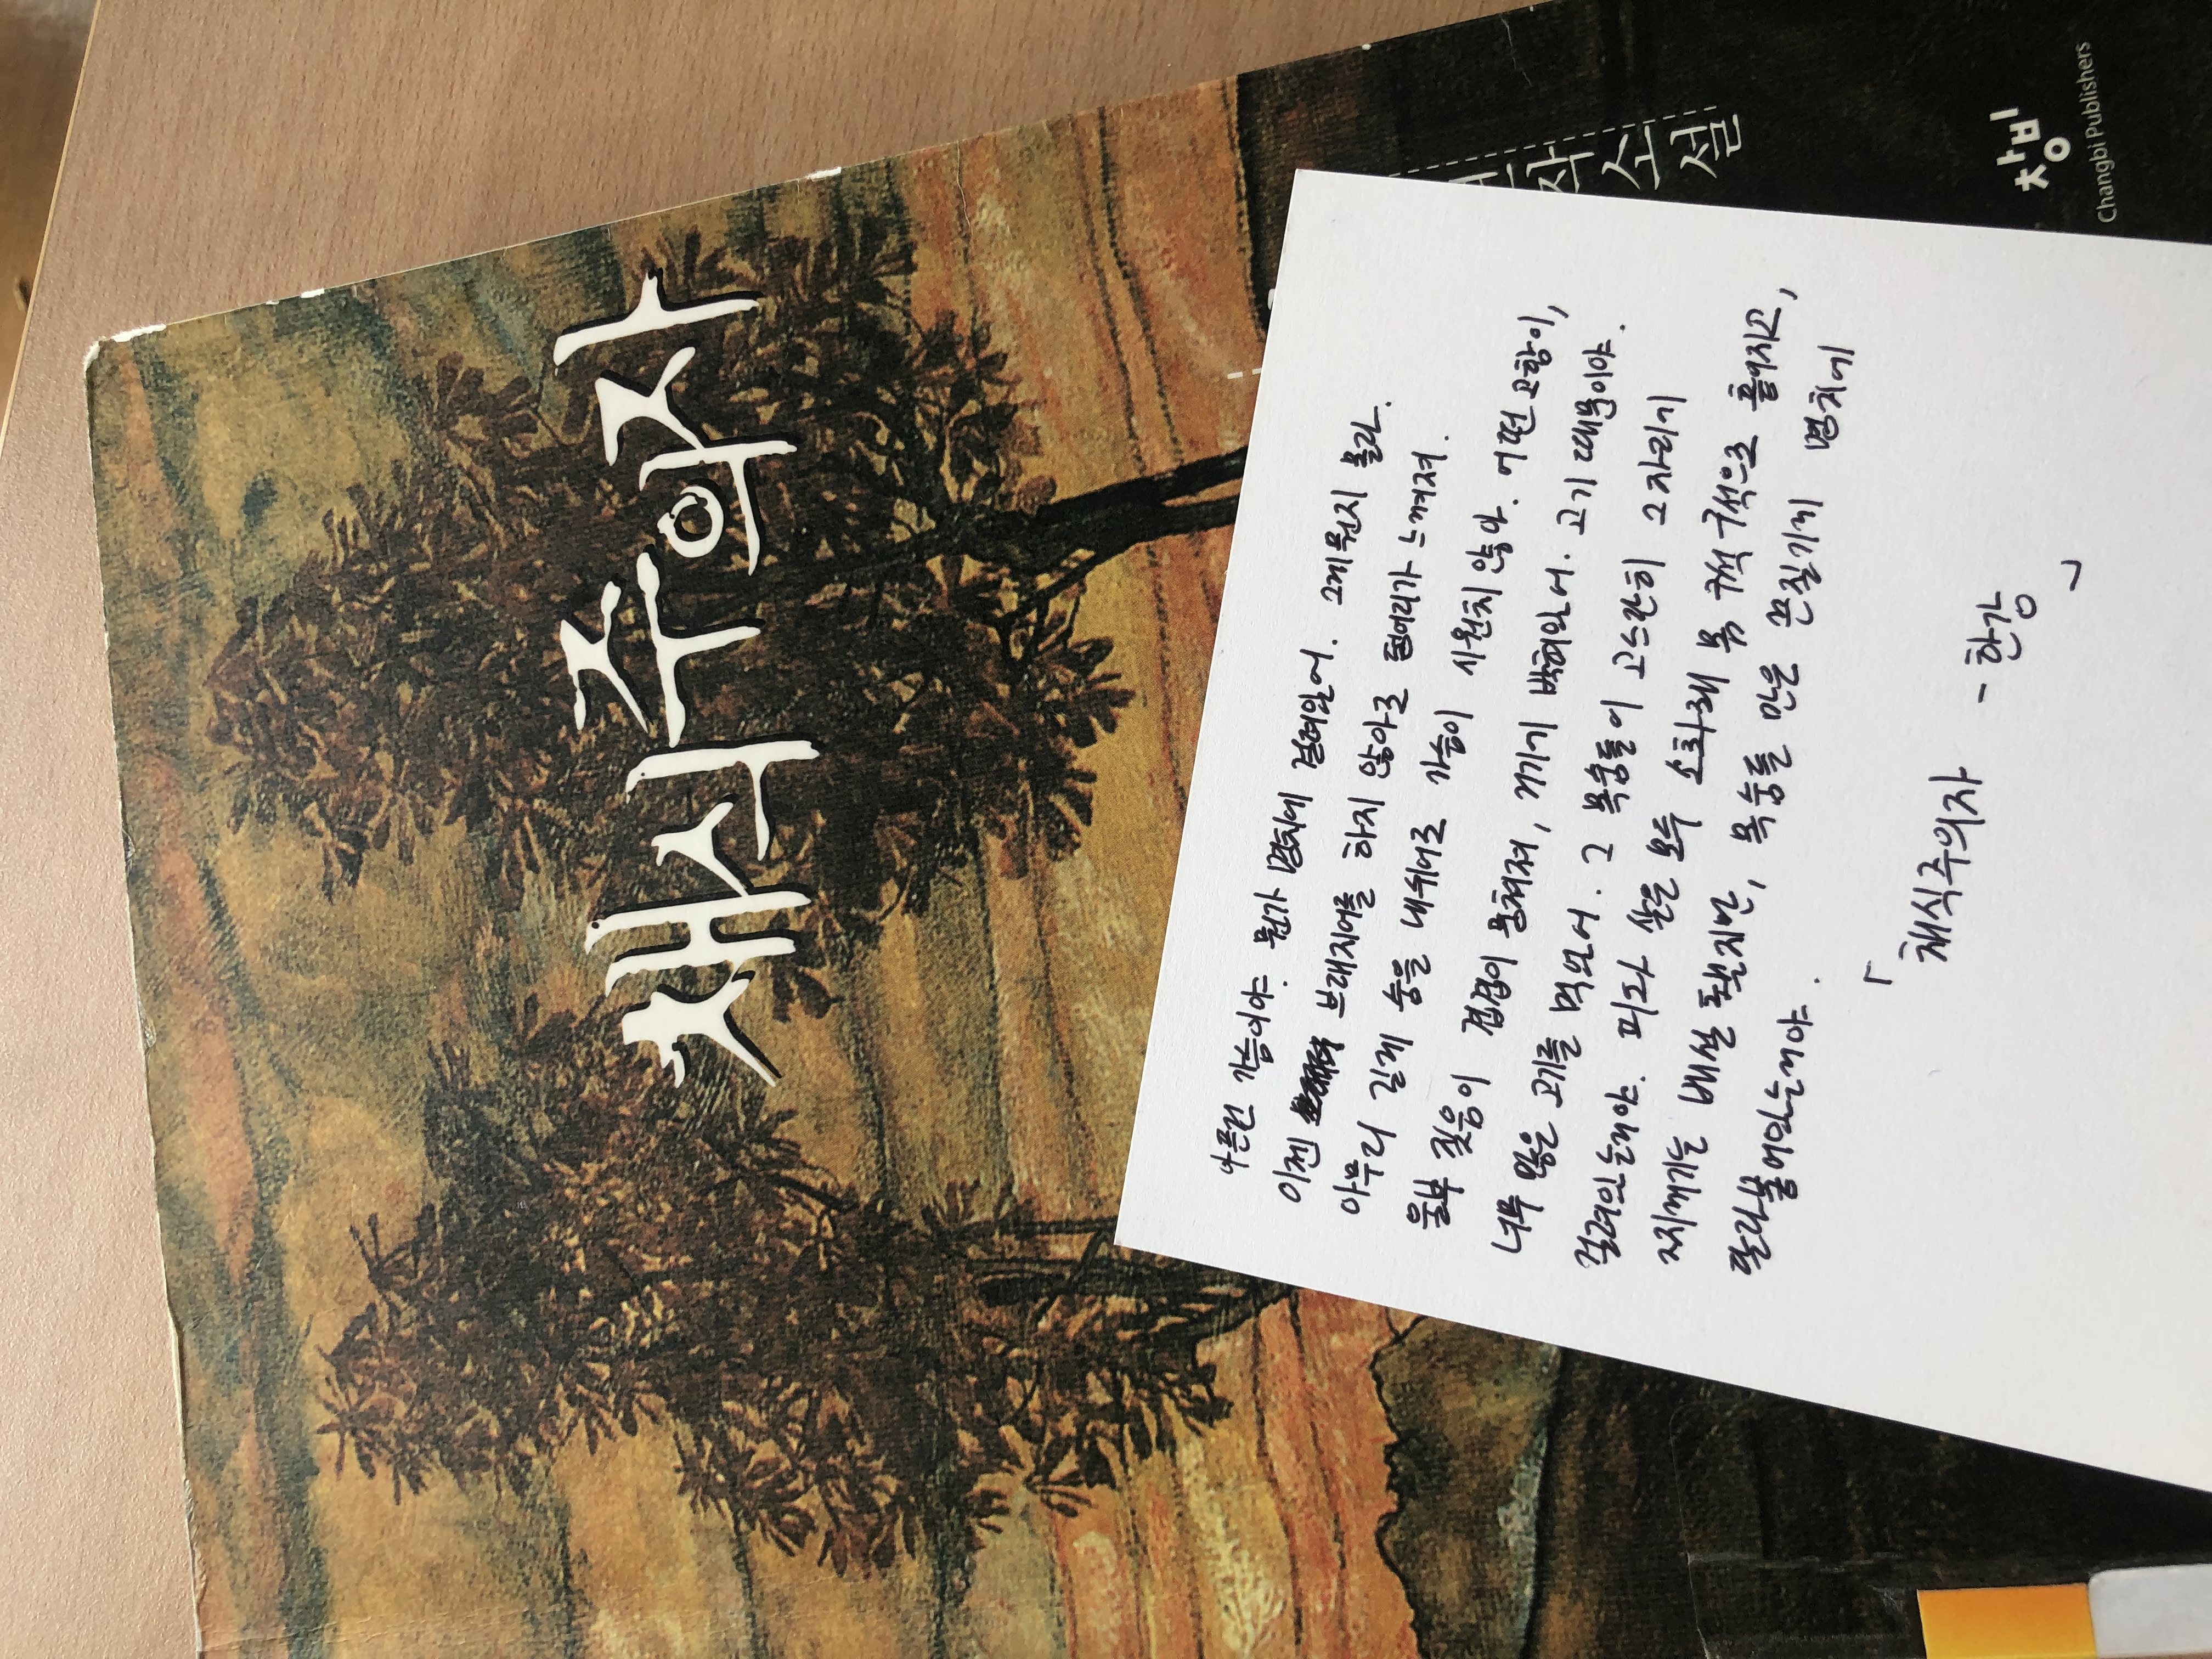 채식주의자
작
소
설
창비
Changbi Publishers
아픈건 가슴이야. 뭔가 명치에 걸려있어. 그게 뭔지 몰라.
이젠 브래지어를 하지 않아도 덩어리가 느껴져.
아무리 길게 숨을 내쉬어도 가슴이 시원치 않아. 어떤 고함이,
울부짖음이 겹겹이 뭉쳐져, 거기 박혀있어. 고기 때문이야.
너무 많은 고기를 먹었어. 그 목숨들이 고스란히 그 자리에
걸려있는거야. 피와 살은 모두 소화돼 몸 구석구석으로 흩어지고,
찌꺼기는 배설됐지만, 목숨들만은 끈질기게 명치에
달라붙어있는거야.
「채식주의자 - 한강」